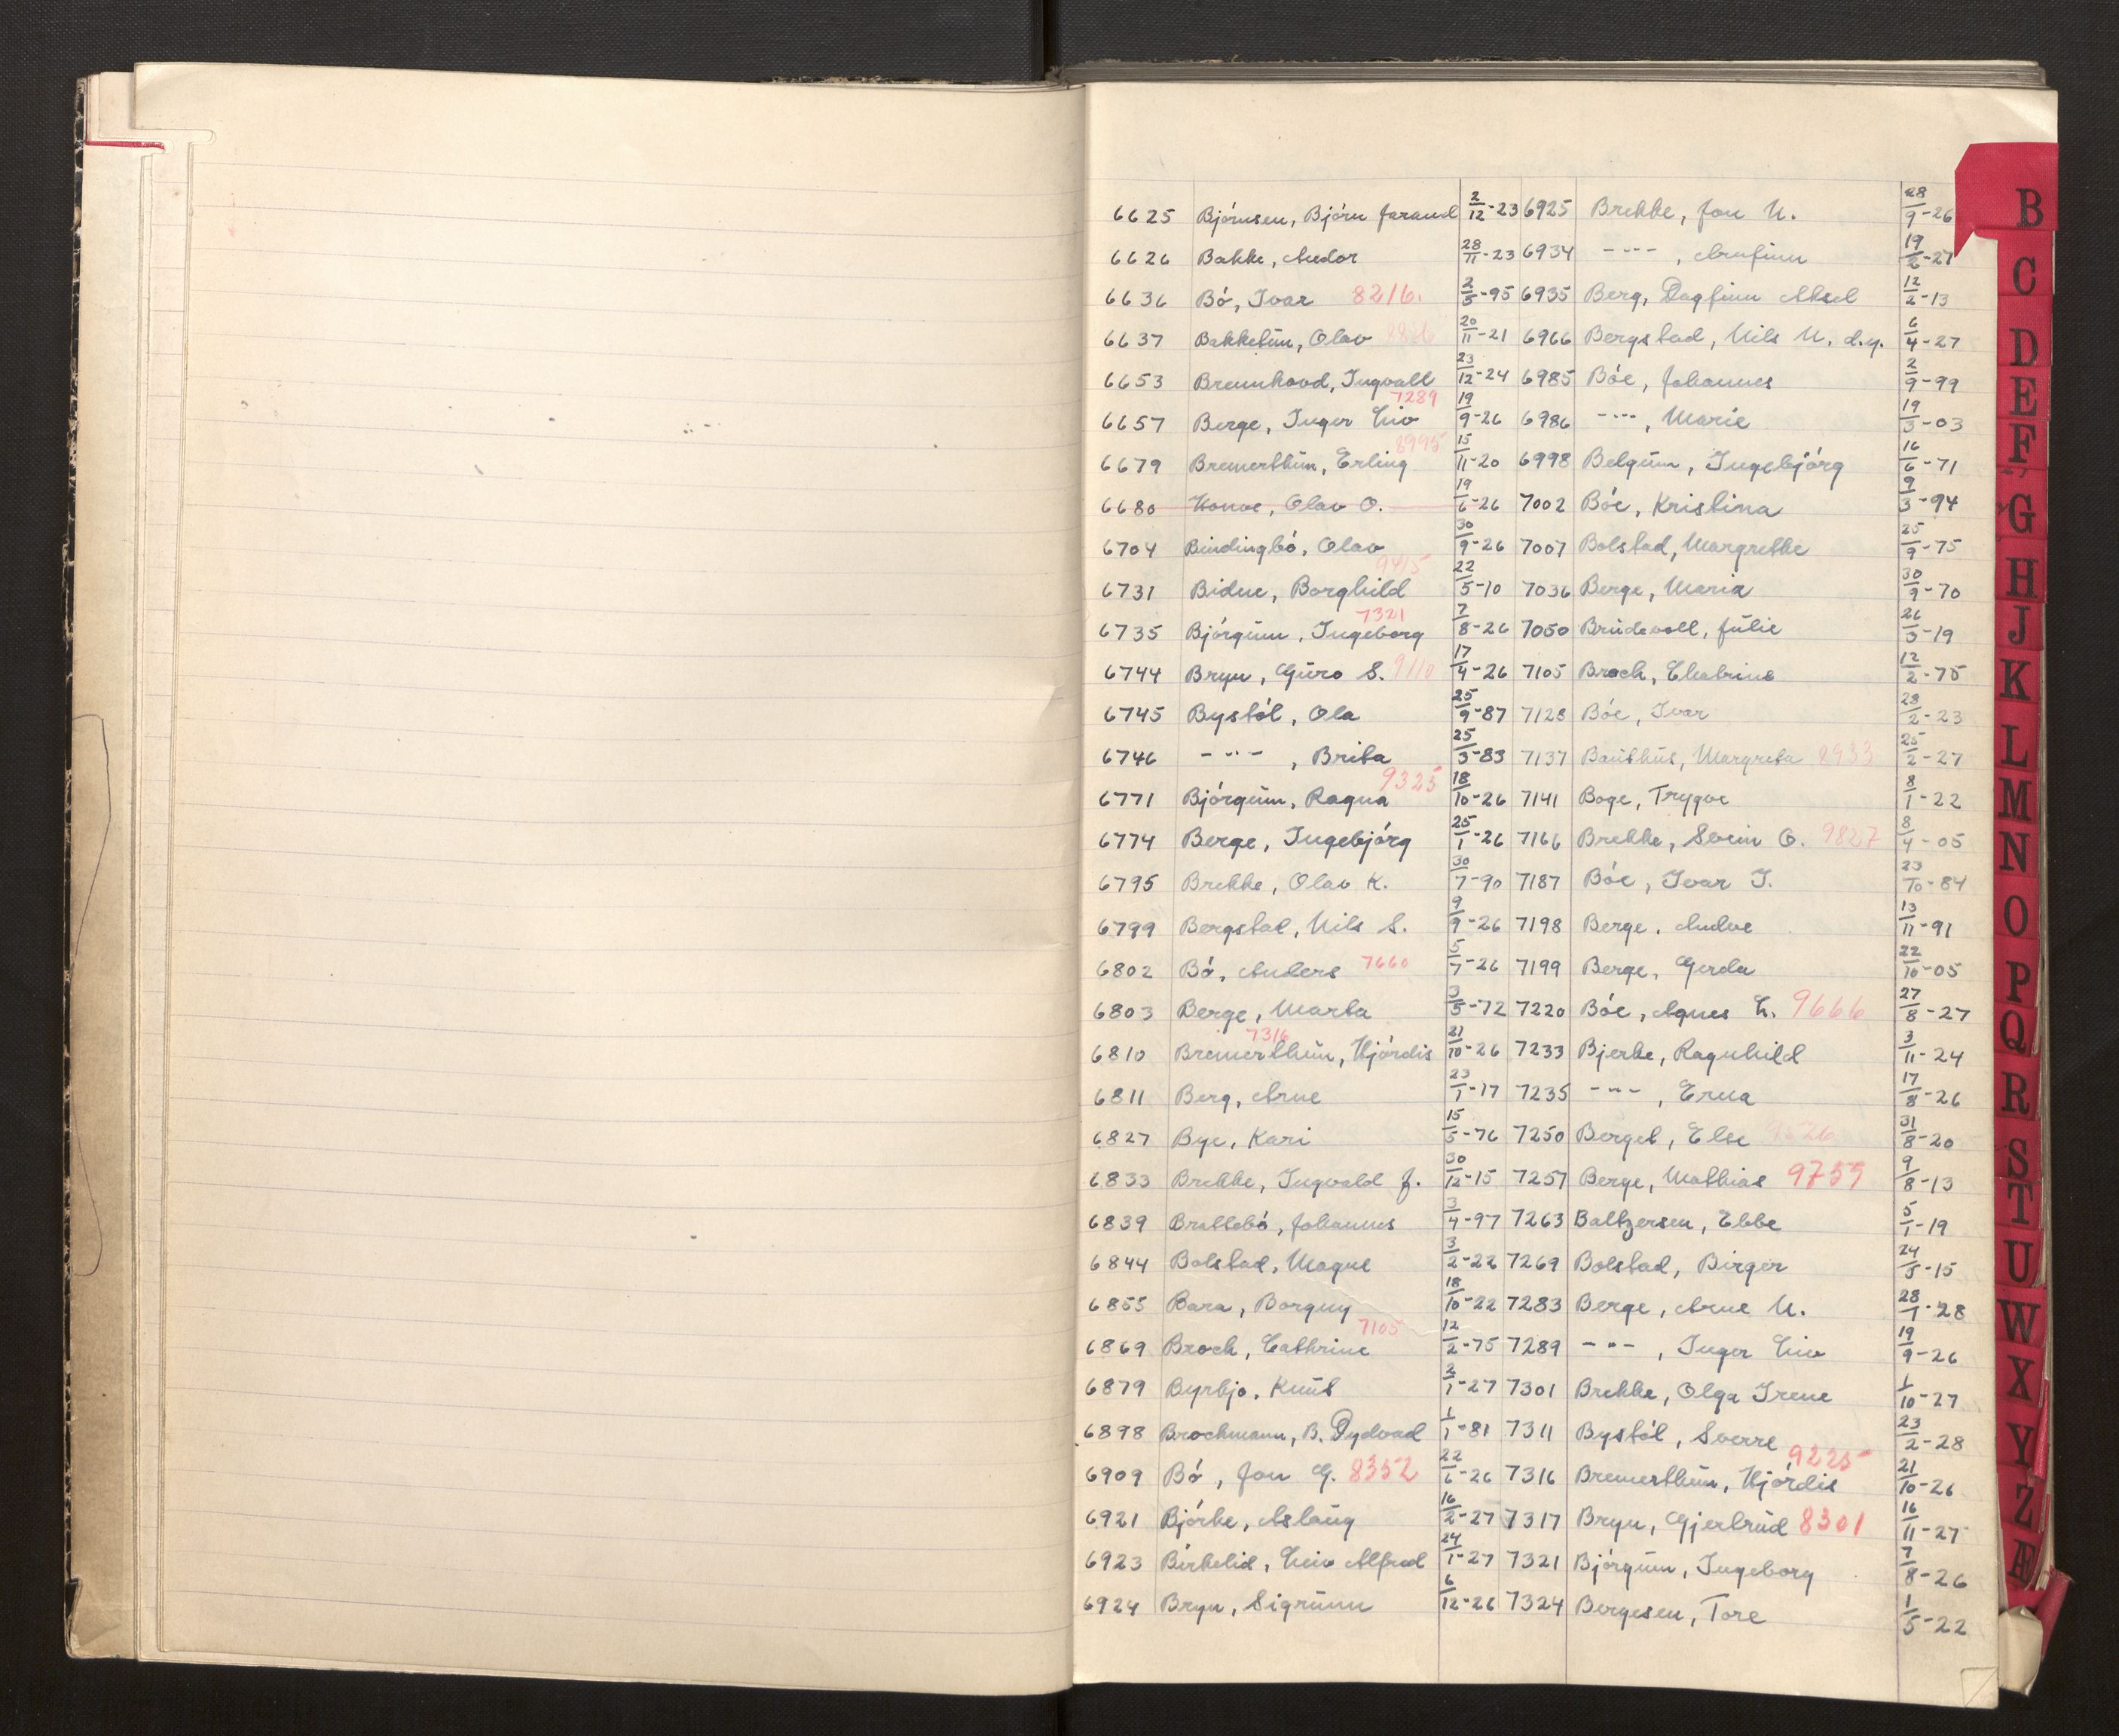 6625 Björnsen, Björn Jarand 2/12-23 6925 Brekke, Jon N. 28/9-26
6626 Bakke, Andor 28/11-23 6934 -"- , Arnfinn 19/2-27
6636 Bö, Ivar 8216. 2/5-95 6935 Berg, Dagfinn Aksel 12/2-13
6637 Bakketun, Olav 20/11-21 6966 Bergstad, Nils N. d.y. 6/4-27
6653 Brennhovd, Ingvall 23/12-24 6985 Böe, Johannes 2/9-99
6657 Berge, Inger Liv 7289 19/9-26 6986 -"- , Marie 19/3-03
6679 Bremerthun, Erling 8995 15/11-20 6998 Belgum, Ingebjörg 16/6-71
6680 Honve, Olav O. 19/6-26 7002 Böe, Kristina 9/3-94
6704 Bindingbö, Olav 30/9-26 7007 Bolstad, Margrethe 25/9-75
6731 Bidne, Borghild 9415 22/5-10 7036 Berge, Maria 30/9-70
6735 Björgum, Ingeborg 7321 7/8-26 7050 Brudevoll, Julie 26/3-19
6744 Bryn, Guro S. 9110 17/4-26 7105 Broch, Chatrine 12/2-75
6745 Bystöl, Ola 25/9-87 7128 Böe, Ivar 28/2-23
6746 -"- , Brita 25/3-83 7137 Bauthus, Margreta 8933 25/2-27
6771 Björgum, Ragna 9325 18/10-26 7141 Boge, Trygve 8/1-22
6774 Berge, Ingebjörg 25/1-26 7166 Brekke, Svein O. 9827 8/4-05
6795 Brekke, Olav K. 30/7-90 7187 Böe, Ivar I. 23/10-84
6799 Bergstad, Nils S. 9/9-26 7198 Berge, Andve 13/11-91
6802 Bö, Anders 7660 5/7-26 7199 Berge, Gerda 22/10-05
6803 Berge, Marta 3/5-72 7220 Böe, Agnes L. 9666 27/8-27
6810 Bremerthun, Hjördis 7316 21/10-26 7233 Bjerke, Ragnhild 3/11-24
6811 Berg, Arne 23/1-17 7235 -"- , Erna 17/8-26
6827 Bye, Kari 15/5-76 7250 Berget, Else 31/8-20
6833 Brekke, Ingvald J. 30/12-15 7257 Berge, Mathias 9759 9/8-13
6839 Brattebö, Johannes 3/4-97 7263 Baltzersen, Ebbe 5/1-19
6844 Bolstad, Magne 3/2-22 7269 Bolstad, Birger 24/5-15
6855 Bara, Borgny 18/10-22 7283 Berge, Arne N. 28/1-28
6869 Broch, Cathrine 7105 12/2-75 7289 -"- , Inger Liv 19/9-26
6879 Byrkjo, Knut 2/1-27 7301 Brekke, Olga Irene 1/10-27
6898 Brochmann, B. Dydvad 1/1-81 7311 Bystöl, Sverre 23/2-28
6909 Bö, Jon G. 8352 22/6-26 7316 Bremerthun, Hjördis 9225 21/10-26
6921 Björke, Aslaug 16/2-27 7317 Bryn, Gjertrud 8301 16/11-27
6923 Birkelid, Leiv Alfred 24/1-27 7321 Björgum, Ingeborg 7/8-26
6924 Bryn, Sigrunn 6/12-26 7324 Bergesen, Tore 1/5-22
B
C
D
E
F
G
H
J
K
L
M
N
O
P
Q
R
S
T
U
W
X
Y
Z
Æ